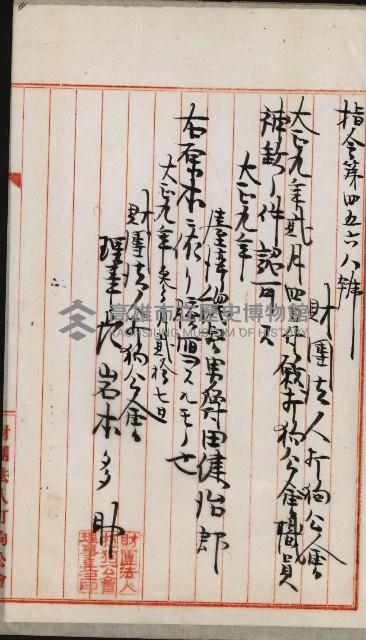 指令第四五六八號
財團法人打狗公會
大正九年貳月四日附願打狗公會職員
補缺ノ件認可ス
大正九年
臺灣總督男爵田健治郎
右原本ニ依リ謄寫スルモノ也
大正九年 月貳拾七日
財團法人打狗公會
理事長岩本多助
財團法人
打狗公會
理事長之印
財團法人打狗公會
高雄市立歷史博物館
KAOHSIUNG MUSEUM OF HISTORY